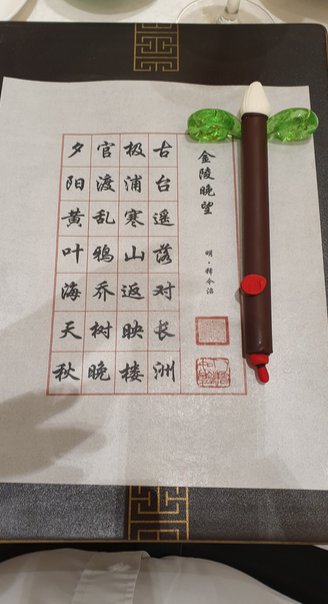 金陵晚望
明·释今
古台遥落对长洲
极浦寒山返映楼
官渡乱鸦乔树晚
夕阳黄叶海天秋